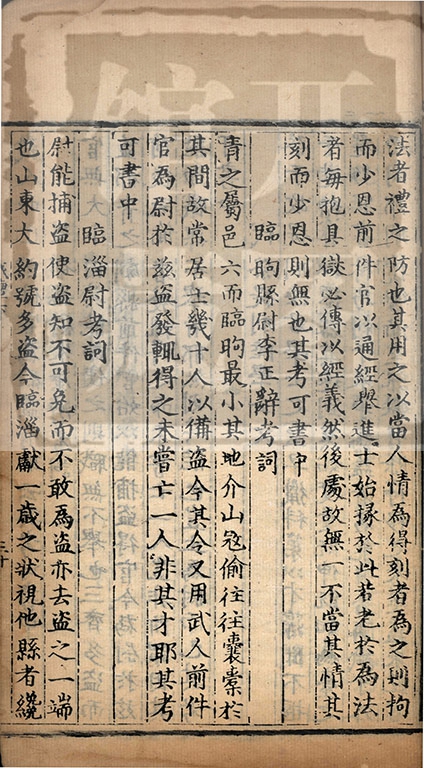 法者禮之防也其用之以當人情為得刻者為之則拘
而少恩前件官以通經舉進士始掾於此若老於為法
者每抱具獄必傅以經義然後處故無一不當其情其
刻而少恩則無也其考可書中
臨朐縣尉李正辭考詞
青之屬邑六而臨朐最小其地介山寇偷往往囊橐於
其間故常居士幾十人以備盜今其令又用武人前件
官為尉於玆盜發輒得之未嘗亡一人非其才耶其考
可書中
臨淄尉考詞
尉能捕盜使盜知不可免而不敢為盜亦去盜之一端
也山東大約號多盜今臨淄獻一歲之狀視他縣者纔